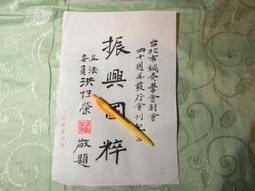 台北市鍼灸學會創會
四十週年發行會刊紀念
振興國粹
立法
委員 洪性榮
敬題